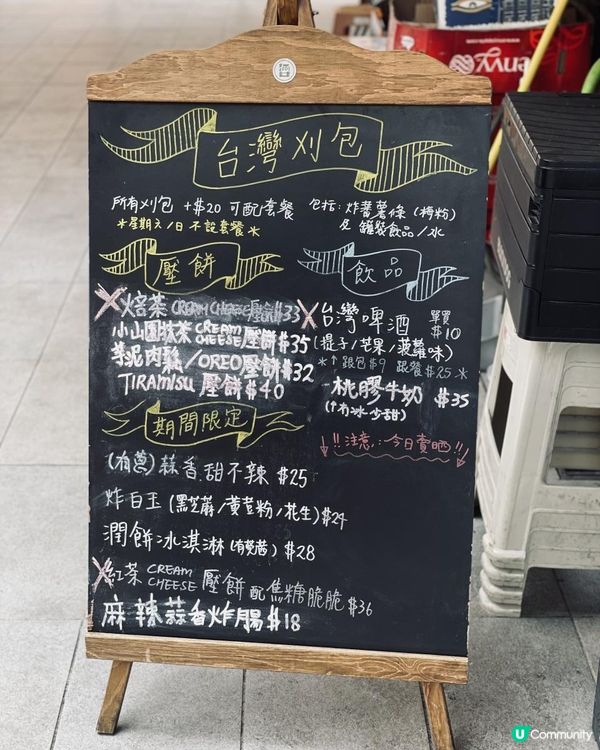 台灣刈包
所有刈包 +$20 可配套餐
*星期六/日 不設套餐*
包括: 炸蕃薯條 (梅粉)
及 罐裝飲品/水
壓餅
焙茶 CREAM CHEESE 壓餅 $33
小山園抹茶 CREAM CHEESE 壓餅 $35
芋泥肉鬆/OREO壓餅 $32
TIRAMISU 壓餅 $40
飲品
台灣啤酒 單買 $10
(提子/芒果/菠蘿味)
*↑跟包$9 跟餐$25*
桃膠牛奶 $35
(有冰少甜)
!!注意: 今日賣晒!!
期間限定
(有蔥) 蒜香甜不辣 $25
炸白玉 (黑芝麻/黃荳粉/花生) $24
潤餅冰淇淋 (有芫茜) $28
紅茶 CREAM CHEESE 壓餅 配 焦糖脆脆 $36
麻辣蒜香炸腸 $18
envy
U Community